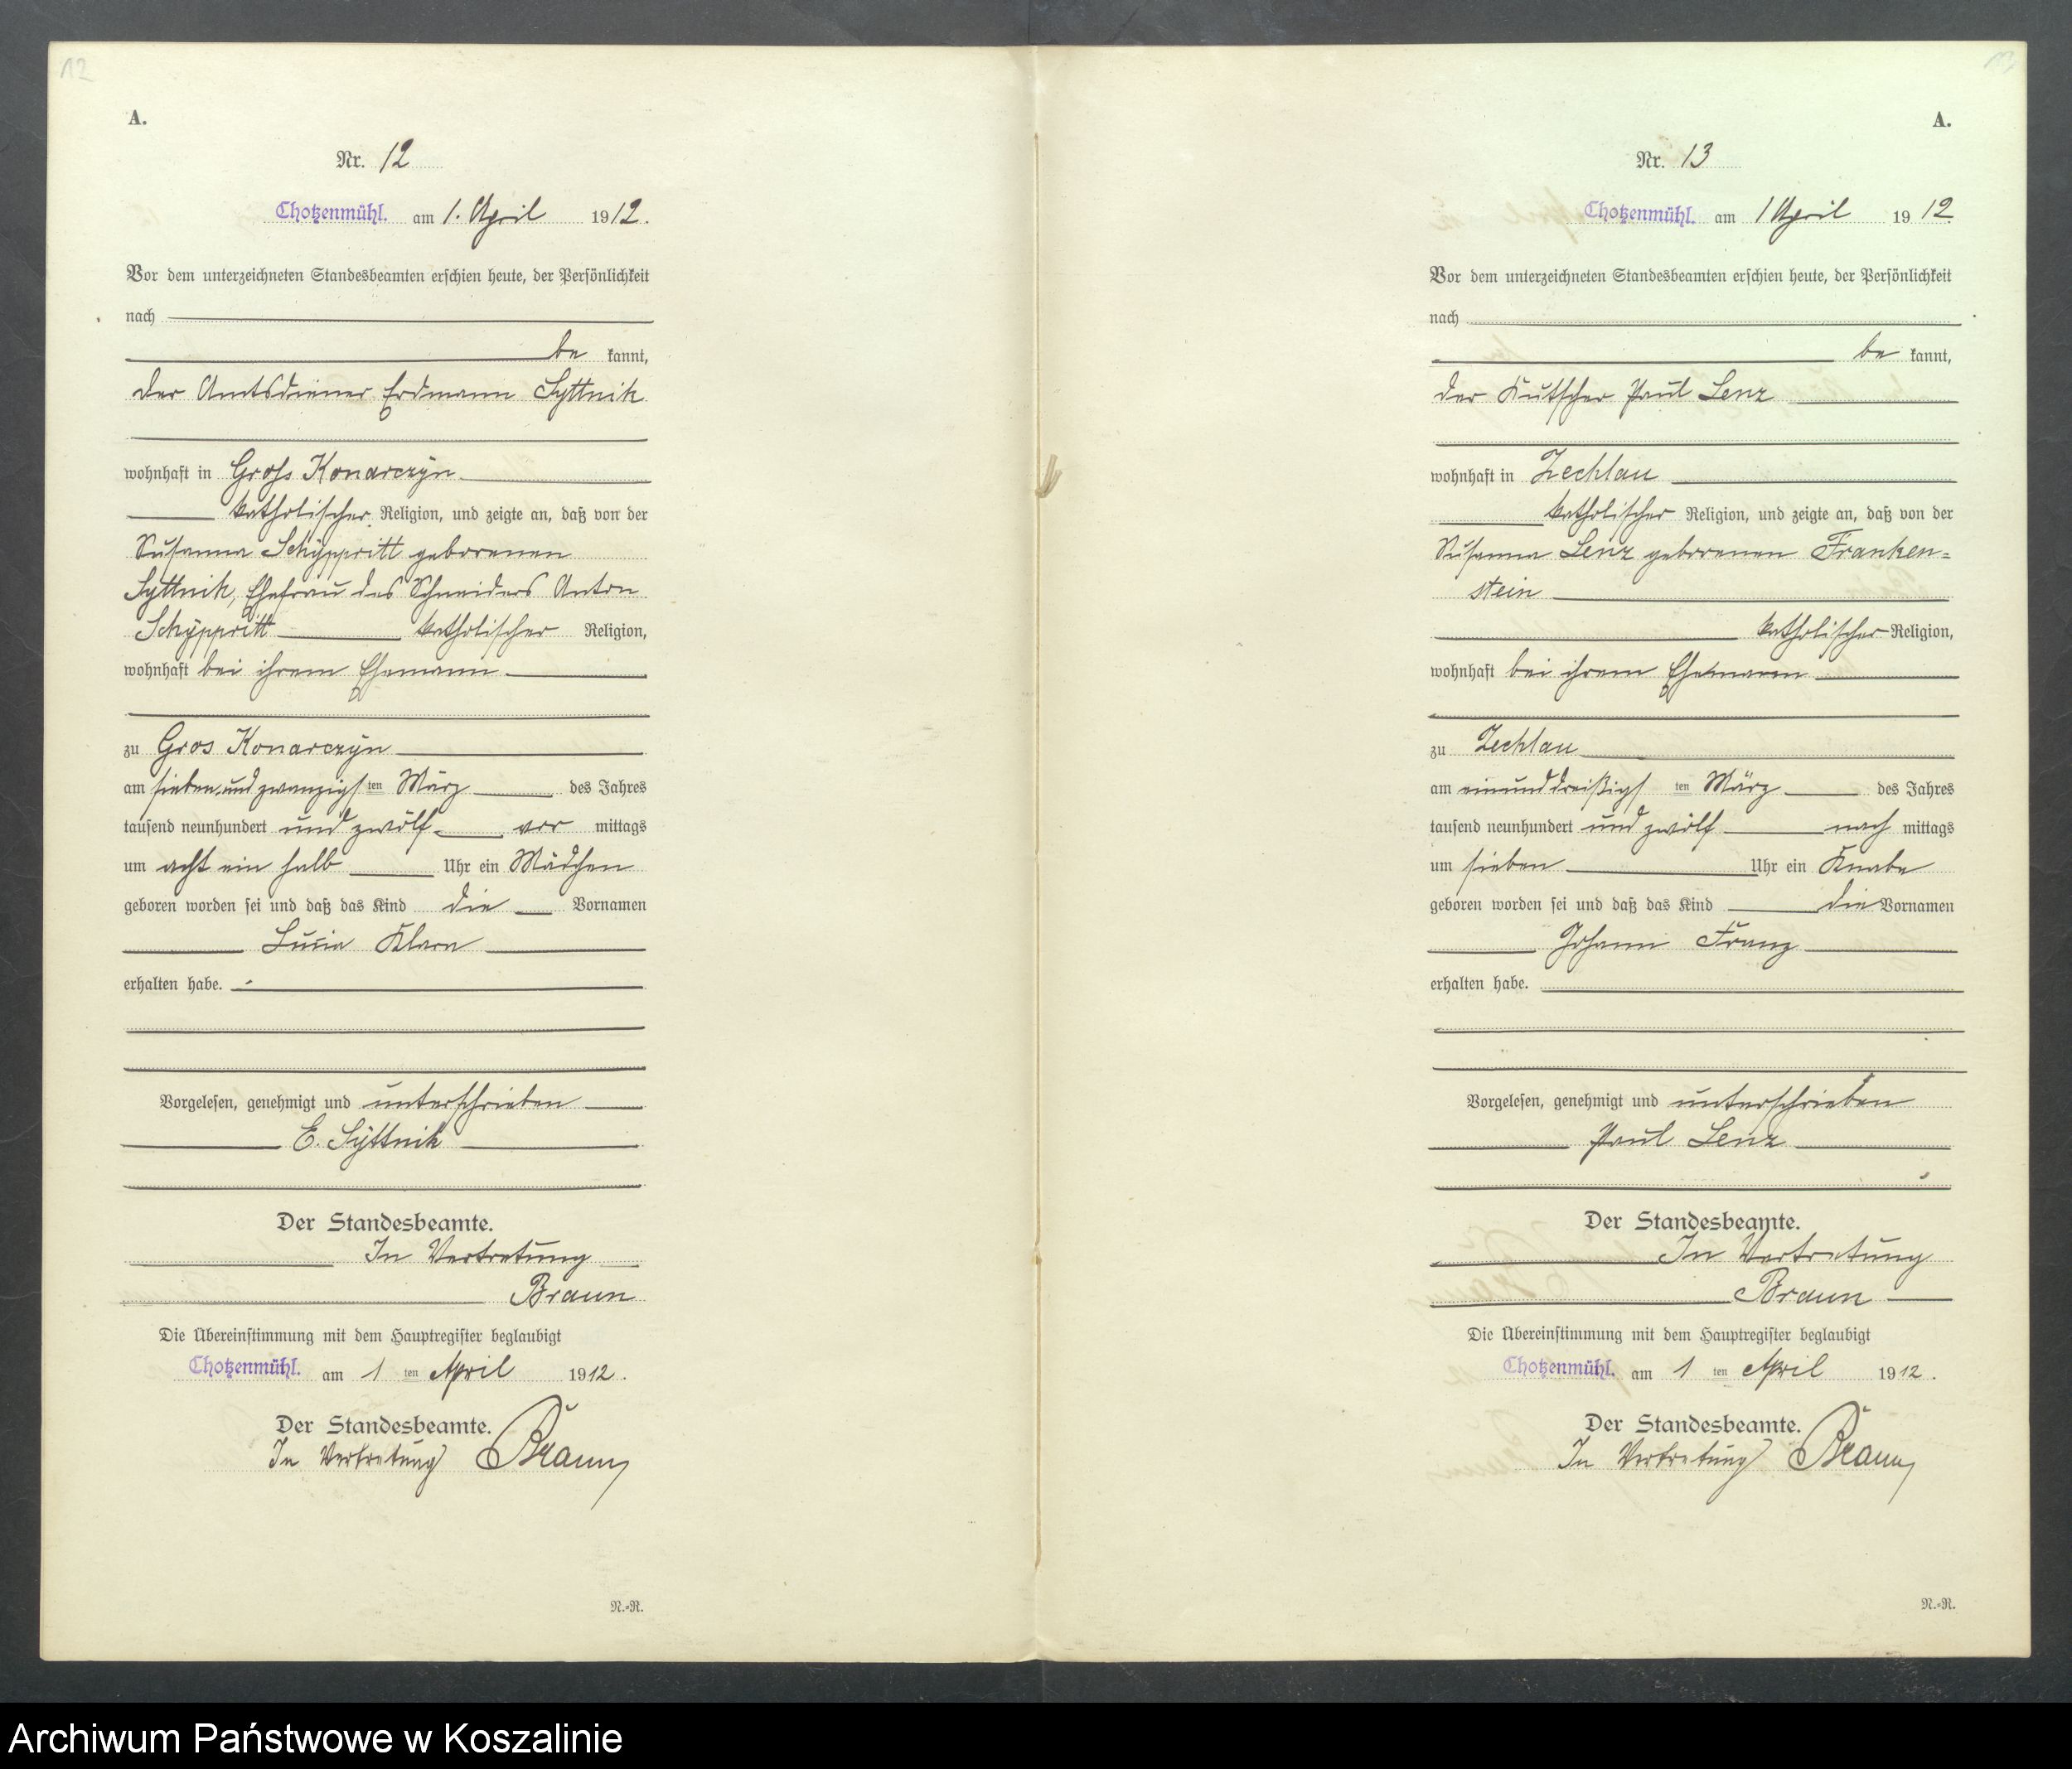 12
A.
Nr. 12
Chotzenmühl. am 1. April 1912.
Vor dem unterzeichneten Standesbeamten erschien heute, der Persönlichkeit
nach
be kannt,
der Amtsdiener Erdmann Syttnik
wohnhaft in Groß Konarczyn
katholischer Religion, und zeigte an, daß von der
Susanna Schyppritt geborenen
Syttnik, Ehefrau des Schneiders Anton
Schyppritt katholischer Religion,
wohnhaft bei ihrem Ehemann
zu Gros Konarczyn
am siebenundzwanzigsten März des Jahres
tausend neunhundert und zwölf vor mittags
um acht ein halb Uhr ein Mädchen
geboren worden sei und daß das Kind die Vornamen
Lucia Klara
erhalten habe.
Vorgelesen, genehmigt und unterschrieben
E. Syttnik
Der Standesbeamte.
In Vertretung
Braun
Die Übereinstimmung mit dem Hauptregister beglaubigt
Chotzenmühl. am 1 ten April 1912.
Der Standesbeamte.
In Vertretung Braun
N.=R.
13
A.
Nr. 13
Chotzenmühl. am 1 April 1912
Vor dem unterzeichneten Standesbeamten erschien heute, der Persönlichkeit
nach
be kannt,
der Kutscher Paul Lenz
wohnhaft in Zechlau
katholischer Religion, und zeigte an, daß von der
Susanna Lenz geborenen Franken=
stein
katholischer Religion,
wohnhaft bei ihrem Ehemann
zu Zechlau
am einunddreißigsten März des Jahres
tausend neunhundert und zwölf nach mittags
um sieben Uhr ein Knabe
geboren worden sei und daß das Kind die Vornamen
Johann Franz
erhalten habe.
Vorgelesen, genehmigt und unterschrieben
Paul Lenz
Der Standesbeamte.
In Vertretung
Braun
Die Übereinstimmung mit dem Hauptregister beglaubigt
Chotzenmühl. am 1 ten April 1912.
Der Standesbeamte.
In Vertretung Braun
N.=R.
Archiwum Państwowe w Koszalinie